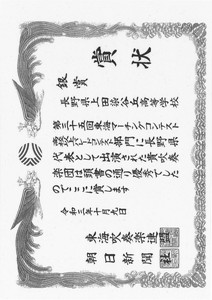 賞状
銀賞
長野県上田染谷丘高等学校
第二十五回東海マーチングコンテスト
高校以上パレードコンテスト部門に長野県
代表として出演された貴吹奏
楽団は頭書の通り優秀でした
のでここに賞します
令和三年十月九日
東海吹奏楽連盟
朝日新聞社